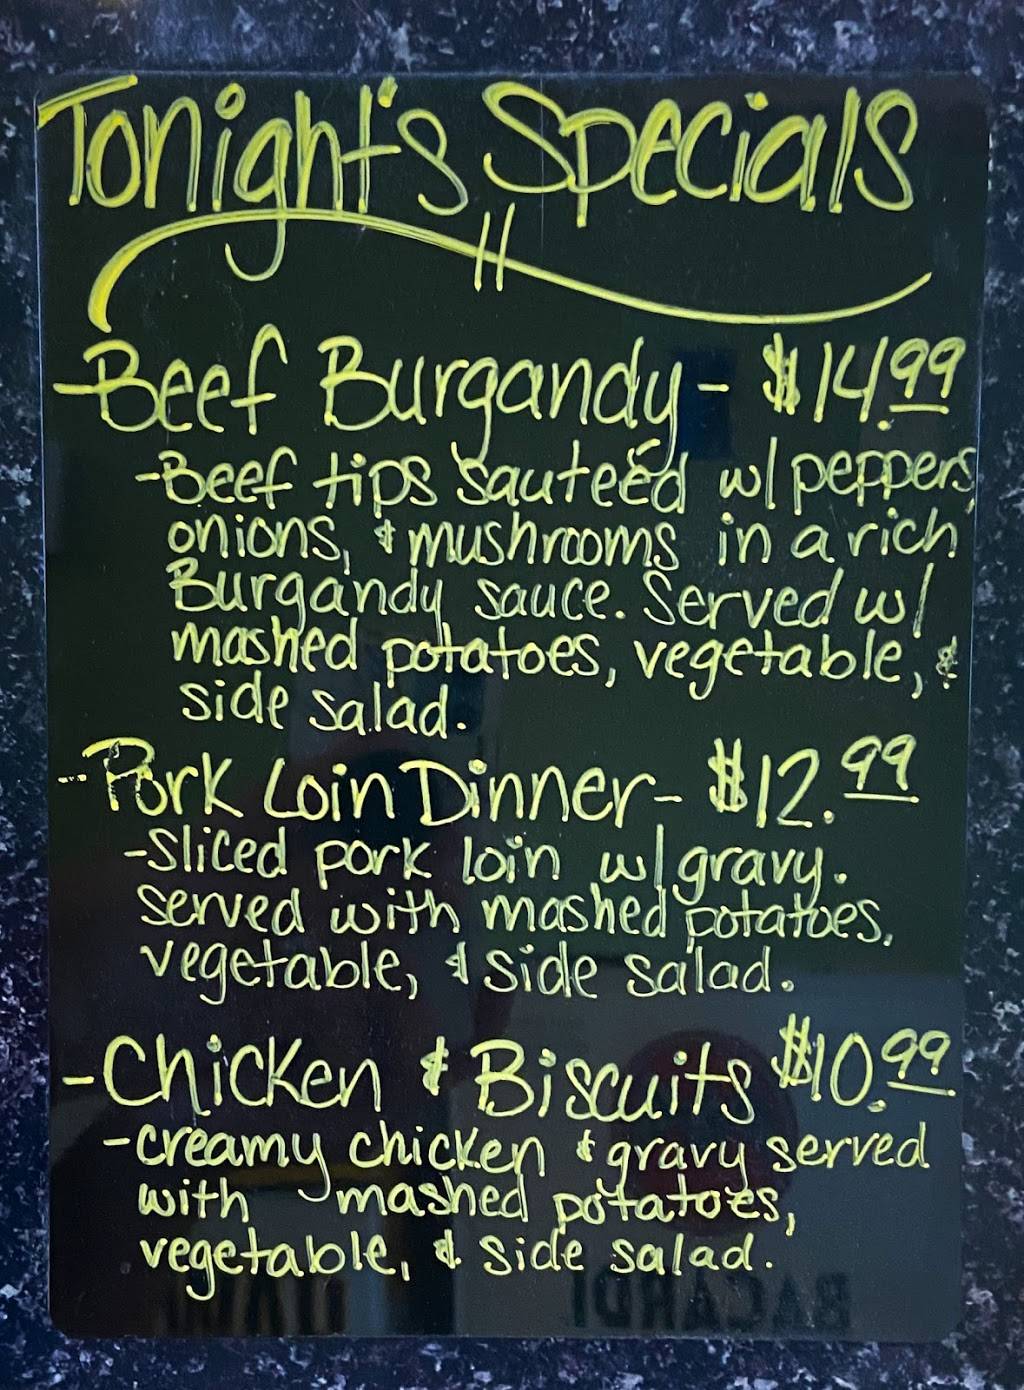 Tonight's Specials
-Beef Burgandy - $14.99
-Beef tips sauteéd w/ peppers,
onions, & mushrooms in a rich
Burgandy sauce. Served w/
mashed potatoes, vegetable, &
side salad.
-Pork Loin Dinner- $12.99
-Sliced pork loin w/ gravy.
Served with mashed potatoes,
vegetable, & side salad.
-Chicken & Biscuits $10.99
-creamy chicken & gravy served
with mashed potatoes,
vegetable, & side salad.
BACARDI